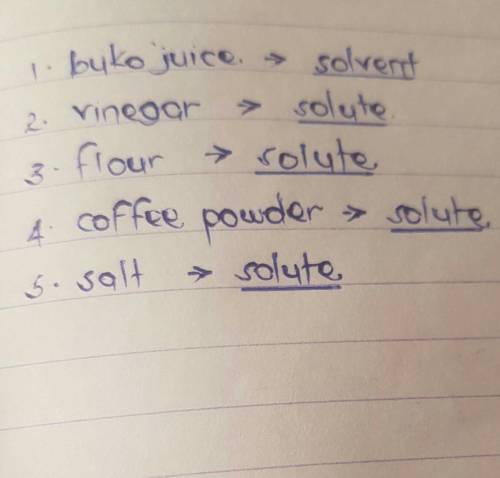 1. buko juice. → solvent
2. vinegar → solute.
3. flour → solute
4. coffee powder → solute
5. salt → solute